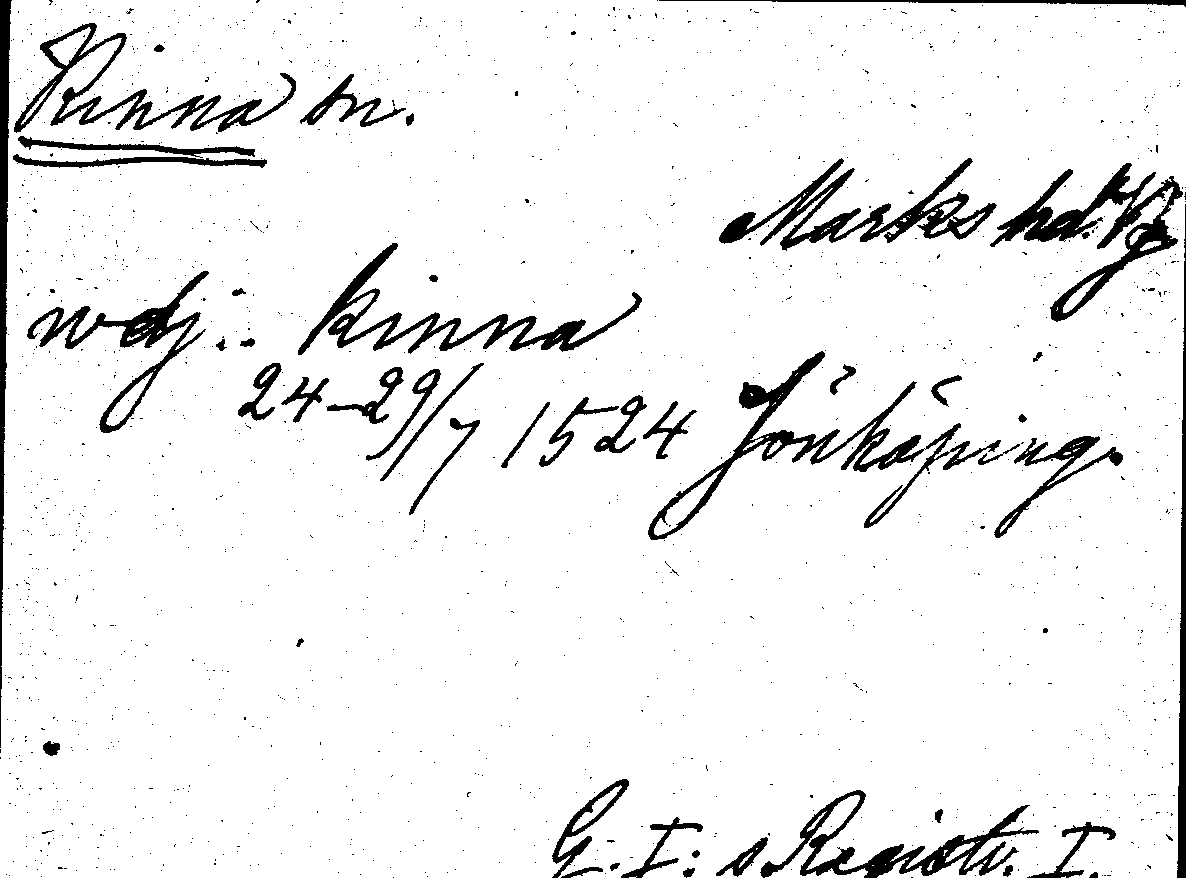 Kinna sn.
Marks hd. Vg
wdj.. kinna
24-29/7 1524 Jönköping.
G. I: s Registr. I.